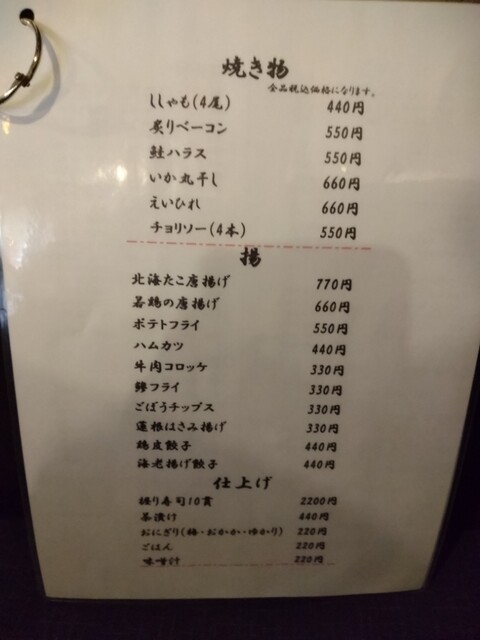 焼き物
全品税込価格になります。
ししゃも(4尾) 440円
炙りベーコン 550円
鮭ハラス 550円
いか丸干し 660円
えいひれ 660円
チョリソー(4本) 550円
揚
北海たこ唐揚げ 770円
若鶏の唐揚げ 660円
ポテトフライ 550円
ハムカツ 440円
牛肉コロッケ 330円
鯵フライ 330円
ごぼうチップス 330円
蓮根はさみ揚げ 330円
鶏皮餃子 440円
海老揚げ餃子 440円
仕上げ
握り寿司10貫 2200円
茶漬け 440円
おにぎり(梅・おかか・ゆかり) 220円
ごはん 220円
味噌汁 220円